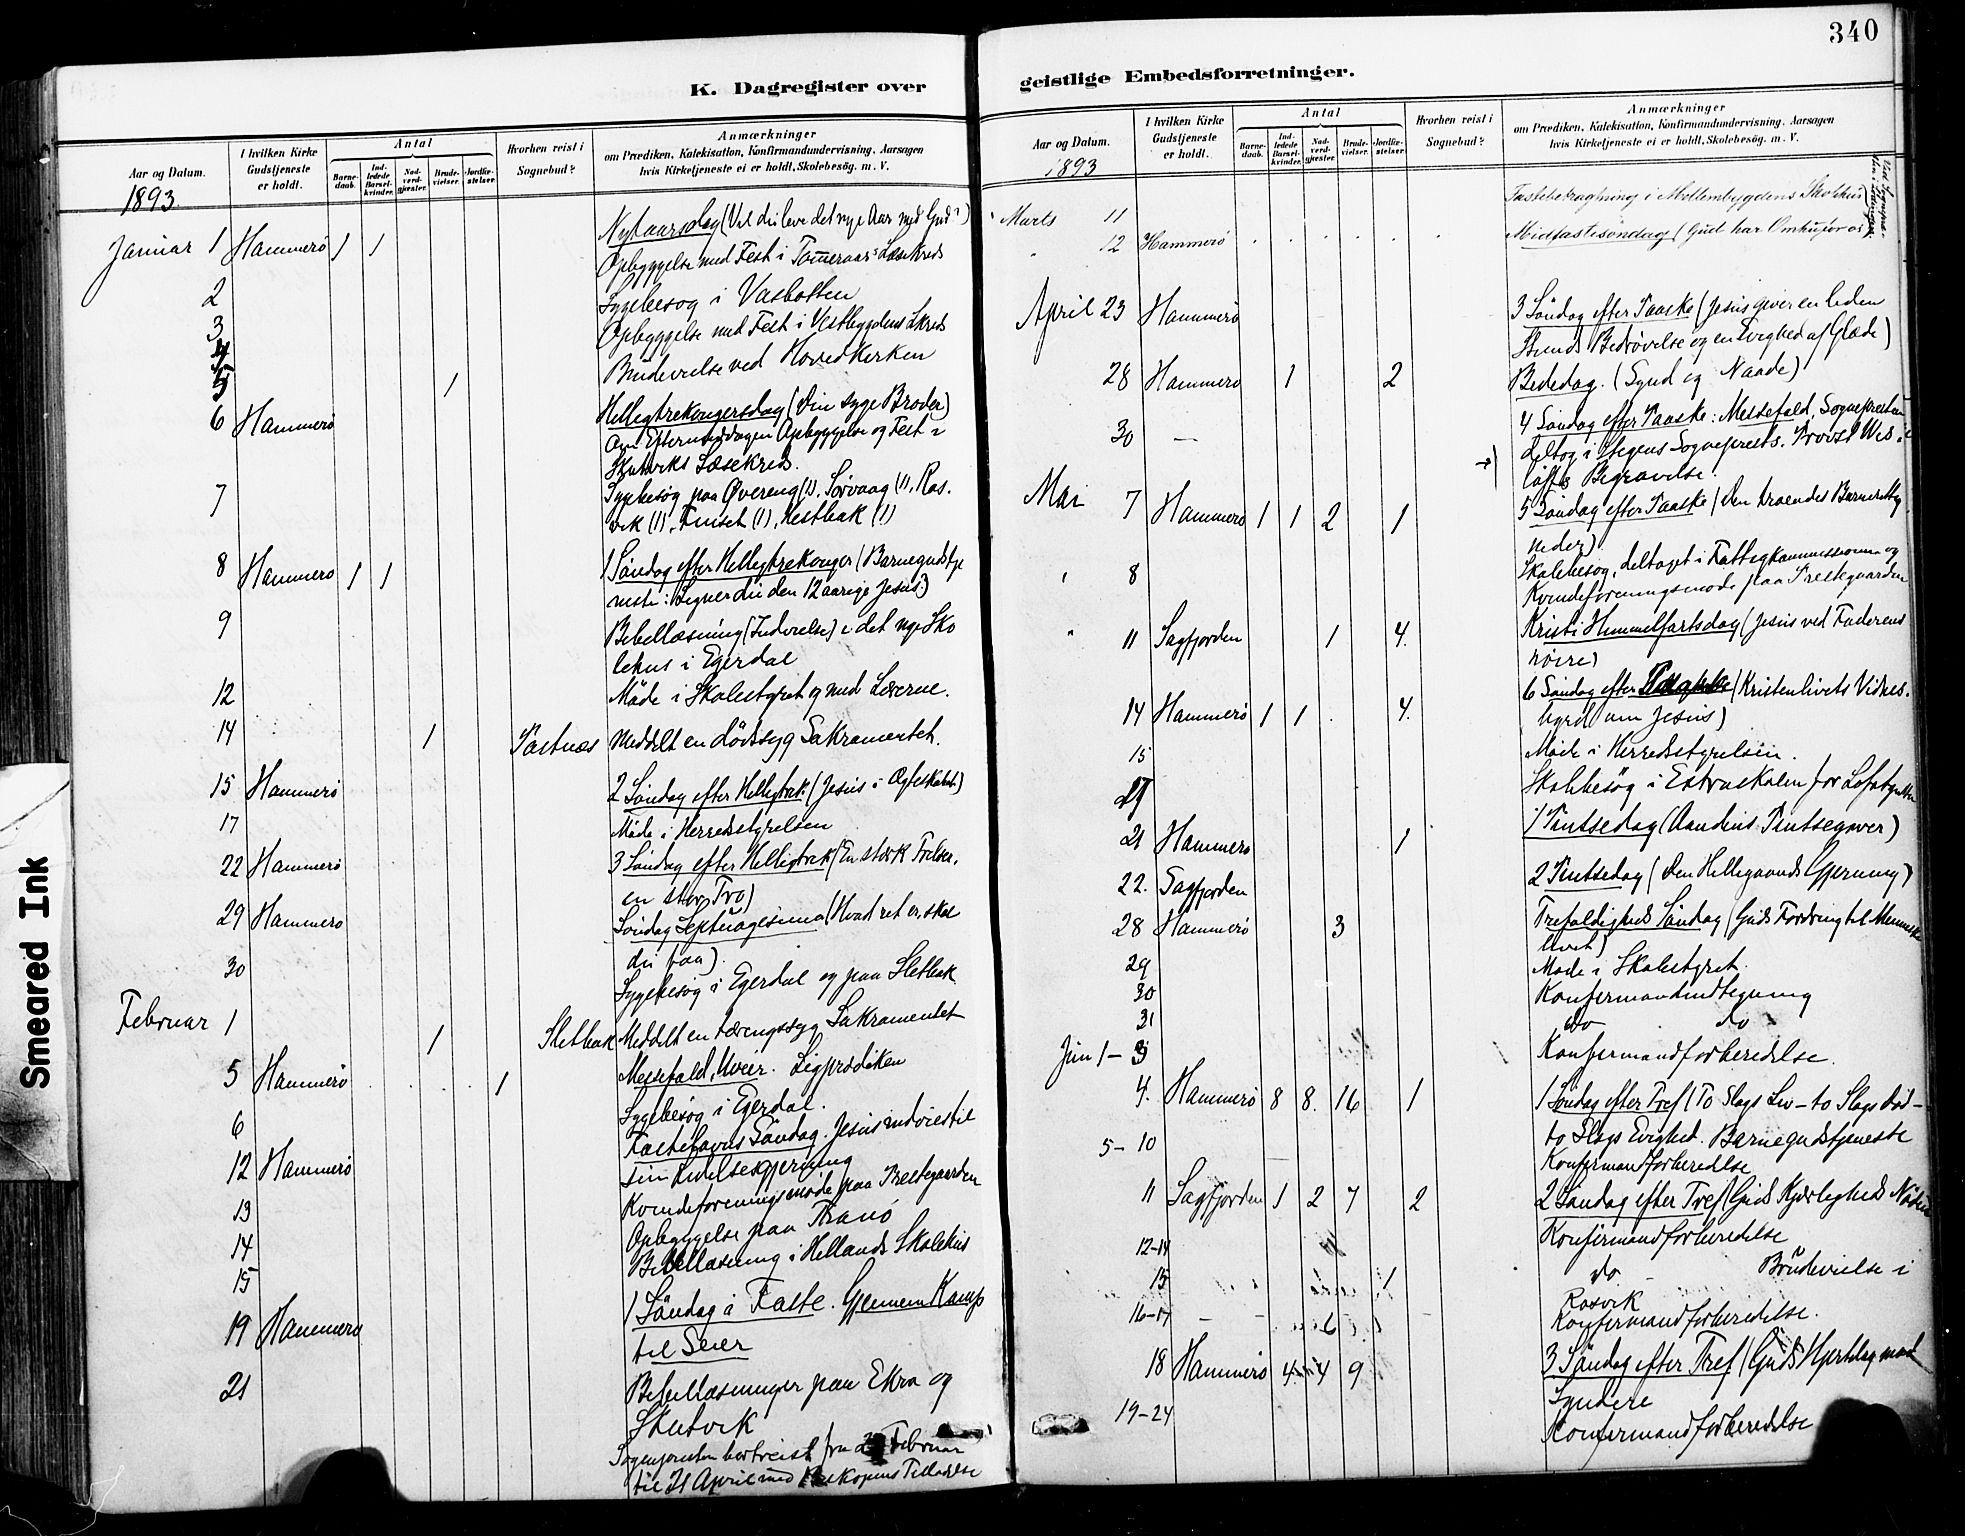 340
K. Dagregister over
geistlige Embedsforretninger.
Aar og Datum.
I hvilken Kirke Gudstjeneste er holdt.
Antal
Barne-daab.
Ind-ledede Barsel-kvinder.
Nad-verd-gjester.
Brude-vielser.
Jordfæ-stelser.
Hvorhen reist i Sognebud?
Anmærkninger
om Prædiken, Katekisation, Konfirmandundervisning, Aarsagen
hvis Kirketjeneste ei er holdt, Skolebesög. m. V.
1893
Januar 1 Hammerö 1 1 Nytaarsdag (Vil du leve det nye Aar med Gud?)
Opbyggelse med Fest i Læsekreds
2 Sygebesøg i Vasbotten
3 Opbyggelse med Fest i Vestbygdens Lkreds
4
5 1 Brudevielse ved Hovedkirken
6 Hammerö Helligtrekongersdag (Din syge Broder)
Om Eftermiddagen Opbyggelse og Fest i
Skutviks Læsekreds.
7 Sygebesøg paa Øvereng (1), Sørvaag (1), Ros-
vik (1), Finset (1), Nesthak (1)
8 Hammerö 1 1 1 Söndag efter Helligtrekonger (Barnegudstje
neste: Ligner du den 12 aarige Jesus?)
9 Bibellæsning (Indvielse) i det nye Sko
lehus i Egerdal
12 Möde i Skolestyret og med Lærerne.
14 1 Tastnæs Meddelt en dödssyg Sakramentet.
15 Hammerö 2 Söndag efter Helligtrek. (Jesus i Ægteskabet)
17 Möde i Herredsstyrelsen
22 Hammerö 3 Söndag efter Helligtrek (En stærk Frelser,
en stor Tro)
29 Hammerö Söndag Septuagesima (Hvad ret er, skal
du faa).
30 Sygebesøg i Egerdal og paa Sletbak
Februar 1 1 Sletbak Meddelt en tæringssyg Sakramentet
5 Hammerö 1 Messefald, Uveir. Ligprædiken
6 Sygebesøg i Egerdal.
12 Hammerö Fastelavns Söndag. Jesus indviestil
sin Lidelsesgjerning
13 Kvindeforeningsmøde paa Prestegaarden
14 Opbyggelse paa Tranö
15 Bibellæsning i Hellands Skolehus
19 Hammerö 1 Söndag i Faste. Gjennem Kamp
til Seier
21 Bibellæsninger paa Ekra og
Skutvik
Sognepresten bortreist fra 2 Februar
til 21 April med Biskopens Tilladelse
Aar og Datum.
I hvilken Kirke Gudstjeneste er holdt.
Antal
Barne-daab.
Ind-ledede Barsel-kvinder.
Nad-verd-gjester.
Brude-vielser.
Jordfæ-stelser.
Hvorhen reist i Sognebud?
Anmærkninger
om Prædiken, Katekisation, Konfirmandundervisning, Aarsagen
hvis Kirketjeneste ei er holdt, Skolebesög. m. V.
1893
Marts 11 Fastebetragtning i Mellembygdens Skolehus
12 Hammerö Midfastesöndag (Gud har Omhu for os)
April 23 Hammerö 3 Söndag efter Paaske (Jesus giver en liden
Stunds Bedrøvelse og en Evighed af Glæde)
28 Hammerö 1 2 Bededag. (Synd og Naade)
30 — 4 Söndag efter Paaske: Messefald, Sognepresten
deltog i Stegens Sogneprests, Provst Wis-
löffs Begravelse.
Mai 7 Hammerö 1 1 2 1 5 Söndag efter Paaske (Den troendes Barneret
8 Skolebesøg, deltaget i Fattigkommissionen og
Kvindeforeningsmøde paa Prestegaarden
11 Sagfjorden 1 4. Kristi Himmelfartsdag (Jesus ved Faderens
höire)
14 Hammerö 1 1 4. 6 Söndag efter Paaske (Kristenlivets Vidnes-
byrd om Jesus)
15 Möde i Herredsstyrelsen.
Skolebesøg i Extraskolen for
21 Hammerö 1 1 Pintsedag (Aandens Pintsegaver)
22. Sagfjorden 2 Pintsedag (Den Helligaands Gjerning)
28 Hammerö 3 Trefoldigheds Söndag (Guds Fordring til Menneske
livet)
29 Möde i Skolestyret.
30 Konfirmandindtegning
31 do do
Juni 1–3 Konfirmandforberedelse.
4. Hammerö 8 8. 16 1 1 Söndag efter Tref (To Slags Liv – to Slags Död –
to Slags Evighed. Barnegudstjeneste
5–10 Konfirmandforberedelse
11 Sagfjorden 1 2 7 2 2 Söndag efter Tref (Guds Kjærligheds
12–14 Konfirmandforberedelse
15 1 do – Brudevielse i
Rosvik
16–17 Konfirmandforberedelse.
18 Hammerö 4 4 9 3 Söndag efter Tref (Guds Hjertelag mod
Syndere
19–24 Konfirmandforberedelse
Smeared Ink